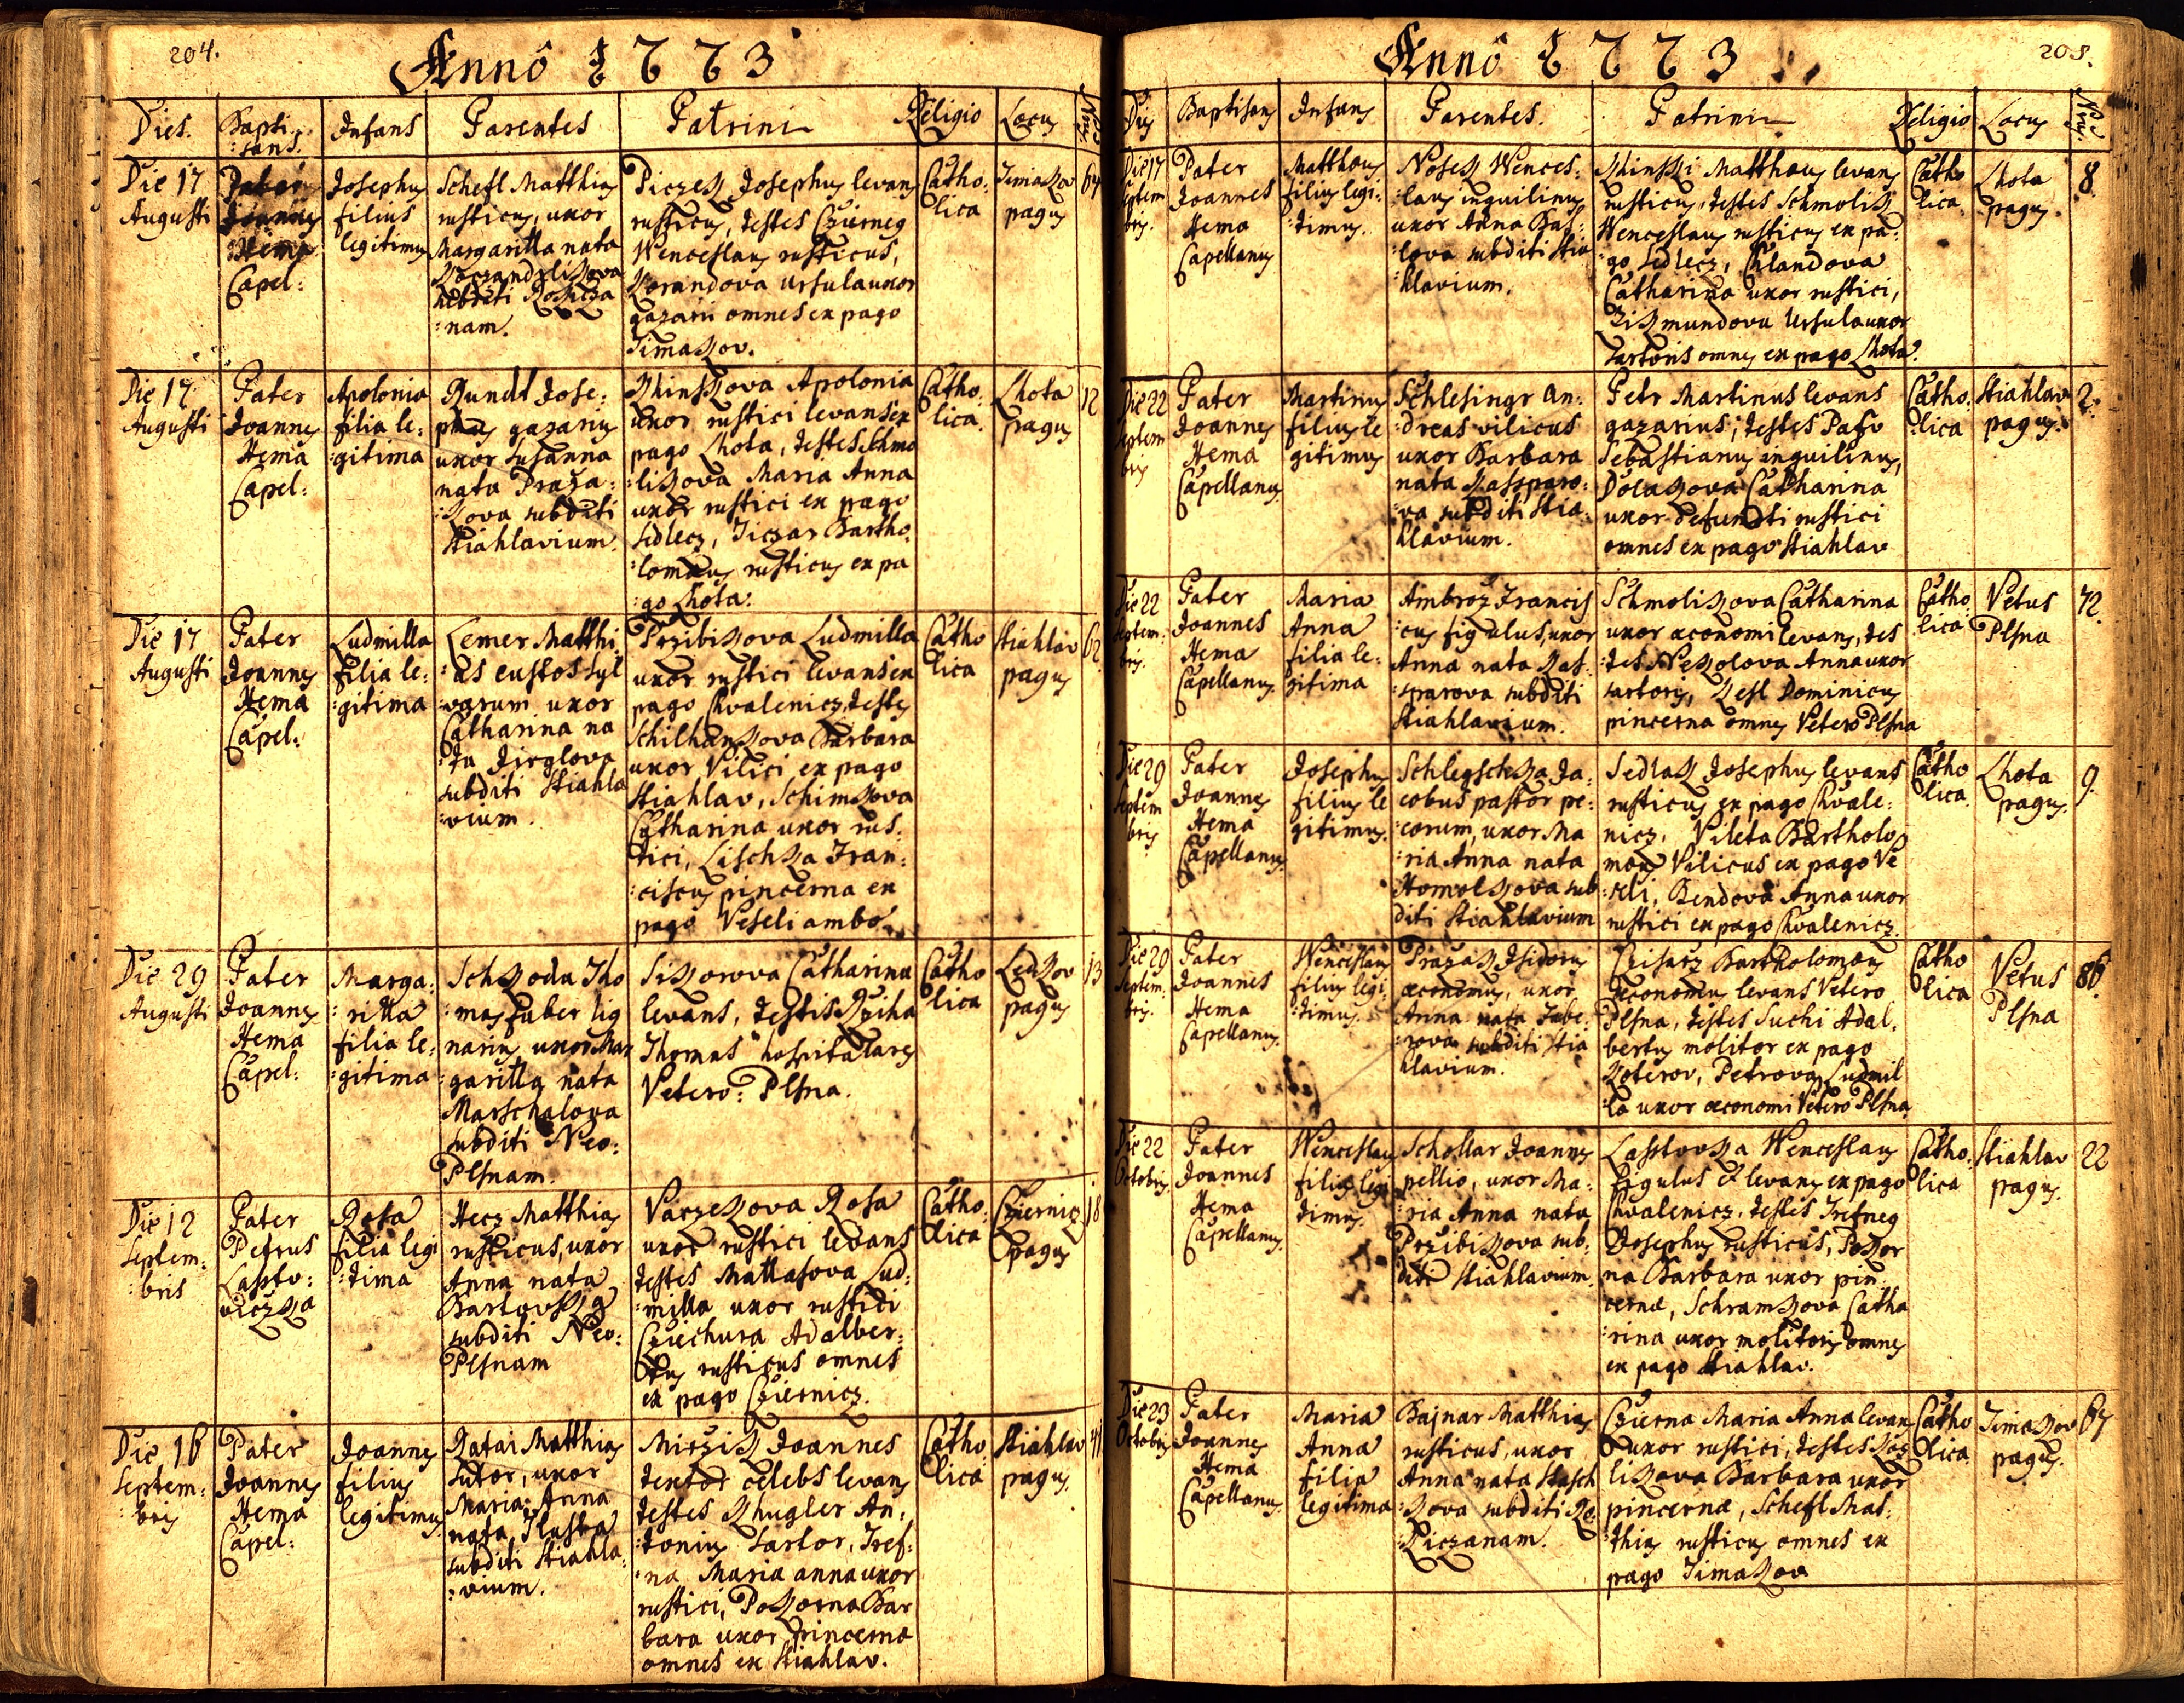 204.
Annô 1773
Dies.
Bapti
:sans.
Infans
Parentes
Patrini
Religio
Locus
Die 17
Augusti
Pater
Joannes
Hema
Capel:
Josephus
filius
legitimus
Schefl Matthias
rusticus, uxor
Margaritta nata
subditi
:nam.
Piczek Josephus levans
rusticus, testes Czerneg
Wenceslaus rusticus,
Korandova Ursula uxor
gazarii omnes ex pago
Timakov.
Catho:
lica
Timakov
pagus
64
Die 17
Augusti
Pater
Joannes
Hema
Capel:
Apolonia
filia le:
:gitima
Rundt Jose:
phus gazarius
uxor Susanna
nata Praža:
:kova subditi
Stiahlavium.
Khinskova Apolonia
uxor rustici levans ex
pago Lhota, testes Schmo
:likova Maria Anna
uxor rustici ex pago
Sedlecz, Jiczar Bartho
:lomæus rusticus ex pa
:go Lhota.
Catho:
lica.
Lhota
pagus
12
Die 17
Augusti
Pater
Joannes
Hema
Capel:
Ludmilla
filia le:
:gitima
Lemer Matthi
:as custos syl
:varum uxor
Catharina na
:ta Jirglova
subditi Stiahla
:vium.
Przibikova Ludmilla
uxor rustici levans ex
pago Chvalenicz, testes
Schilhankova Barbara
uxor Vilici ex pago
Stiahlav, Schimkova
Catharina uxor rus:
tici, Lischka Fran:
:ciscus pincerna ex
pago Veseli ambo.
Catho
lica
Stiahlav
pagus
62
Die 29
Augusti
Pater
Joannes
Hema
Capel:
Marga:
:ritta
filia le:
:gitima
Schkoda Tho
:mas faber lig
narius uxor Mar
garitta nata
Marschalova
subditi Neo:
Plsnam.
Sikorova Catharina
levans, testis Rziha
Thomas hospitalares
Vetero: Plsna.
Catho
lica
Letkov
pagus
13
Die 12
Septem:
:bris
Pater
Petrus
Lasto:
viczka
Rosa
filia legi
:tima
Hecz Matthias
rusticus, uxor
Anna nata
subditi Neo:
Plsnam
Vaczekova Rosa
uxor rustici levans
testes Mattasova Lud:
:milla uxor rustici
Cziechura Adalber:
tus rusticus omnes
ex pago Cziernicz.
Catho:
lica
Cziernicz
pagus
18
Die 16
Septem:
:bris
Pater
Joannes
Hema
Capel:
Joannes
filius
legitimus
Ratai Matthias
sutor, uxor
Maria Anna
nata
subditi Stiahla:
:vium.
Mirzik Joannes
textor celebs levans
testes Khugler An:
:tonius Sartor, Tref:
:na Maria anna uxor
rustici, Pokorna Bar
bara uxor pincernæ
omnes ex Stiahlav.
Catho
lica
Stiahlav
pagus.
41
205.
Annô 1773
Dies
Baptisans
Infans
Parentes.
Patrini
Religio
Locus
Die 17
Septem
bris.
Pater
Joannes
Hema
Capellanus
Matthæus
filius legi:
:timus.
Nosek Wences:
:laus inquilinus
uxor Anna Bas:
lova subditi Stia
hlavium.
Khinski Matthæus levans
rusticus, testes Schmolik
Wenceslaus rusticus ex pa:
:go Sedlecz, Chlandova
Catharina uxor rustici,
Zikmundova Ursula uxor
Sartoris omnes ex pago Lhota.
Catho
lica.
Lhota
pagus.
8
Die 22
Septem
bris
Pater
Joannes
Hema
Capellanus
Martinus
filius le
gitimus
Schlesingr An:
:dreas vilicus
uxor Barbara
nata Kassparo:
:va subditi Stia:
hlavium.
Petr Martinus levans
gazarius, testes Pafv
Sebastianus inquilinus,
Dolakova Catharina
uxor defuncti rustici
omnes ex pago Stiahlav
Catho:
lica
Stiahlav
pagus.
2.
Die 22
Septem:
bris.
Pater
Joannes
Hema
Capellanus.
Maria
Anna
filia le:
:gitima
Ambroz Francis
cus figulus, uxor
Anna nata Kas:
:sparova subditi
Stiahlavium.
Schmolikova Catharina
uxor œconomi levans, tes
:tes Nekolova Anna uxor
sartoris, Kesl Dominicus
pincerna omnes Vetero Plsna
Catho
lica
Vetus
Plsna
72.
Die 29
Septem
bris
Pater
Joannes
Hema
Capellanus
Josephus
filius le
gitimus.
Schlegschka Ja:
cobus pastor pe:
:corum, uxor Ma
:ria Anna nata
Homolkova sub
diti Stiahlavium
Sedlak Josephus levans
rusticus ex pago Chvale:
nicz. Vileta Bartholo
mæus Vilicus ex pago Ve
:seli, Bendova Anna uxor
rustici ex pago Chvalenicz.
Catho
lica.
Lhota
pagus.
9.
Die 29
Septem:
bris.
Pater
Joannes
Hema
Capellanus.
Wenceslaus
filius legi:
:timus.
Prazak Isidorus
œconomus, uxor
Anna nata Tube:
:rova subditi Stia
hlavium.
Czisarz Bartholomæus
œconomus levans Vetero
Plsna, testes Suchi Adal.
bertus molitor ex pago
Koterov, Petrova Ludmil
:la uxor œconomi Vetero Plsna
Catho
lica
Vetus
Plsna
86.
Die 22
Octobris.
Pater
Joannes
Hema
Capellanus.
Wenceslaus
filius legi
timus.
Schollar Joannes
pellio, uxor Ma:
:ria Anna nata
Przibikova sub:
diti Stiahlavium.
Lastovka Wenceslaus
figulus & levans ex pago
Chvalenicz, testes Trefneg
Josephus rusticus, Pokor
na Barbara uxor pin
cernæ, Schramkova Catha
:rina uxor molitoris omnes
ex pago Stiahlav.
Catho:
lica
Stiahlav
pagus.
22
Die 23
Octobris
Pater
Joannes
Hema
Capellanus.
Maria
Anna
filia
legitima
Bajnar Matthias
rusticus, uxor
Anna nata Stasch
:kova subditi Ro
:kiczanam.
Czierna Maria Anna levans
uxor rustici, testes Koz
likova Barbara uxor
pincernæ, Schefl Mat:
:thias rusticus omnes ex
pago Timakov
Catho
lica
Timakov
pagus.
67